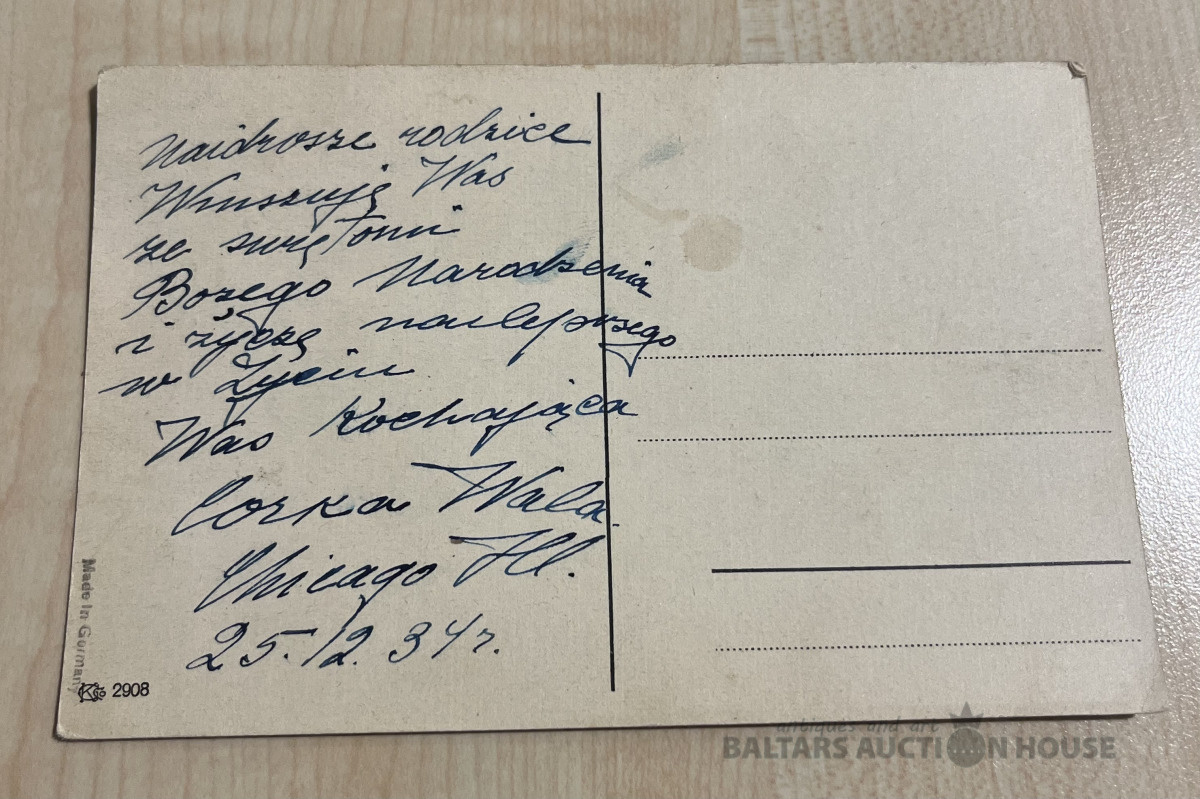 Naidrosze rodzice
Winszuję Was
ze swiętomi
Bozego Narodzenia
i życzę naulepszego
w Życiu
Was Kochająca
Corka Wala
Chicago Ill.
25.12.34 r.
Made in Germany
2908
antiques and art
BALTARS AUCTION HOUSE